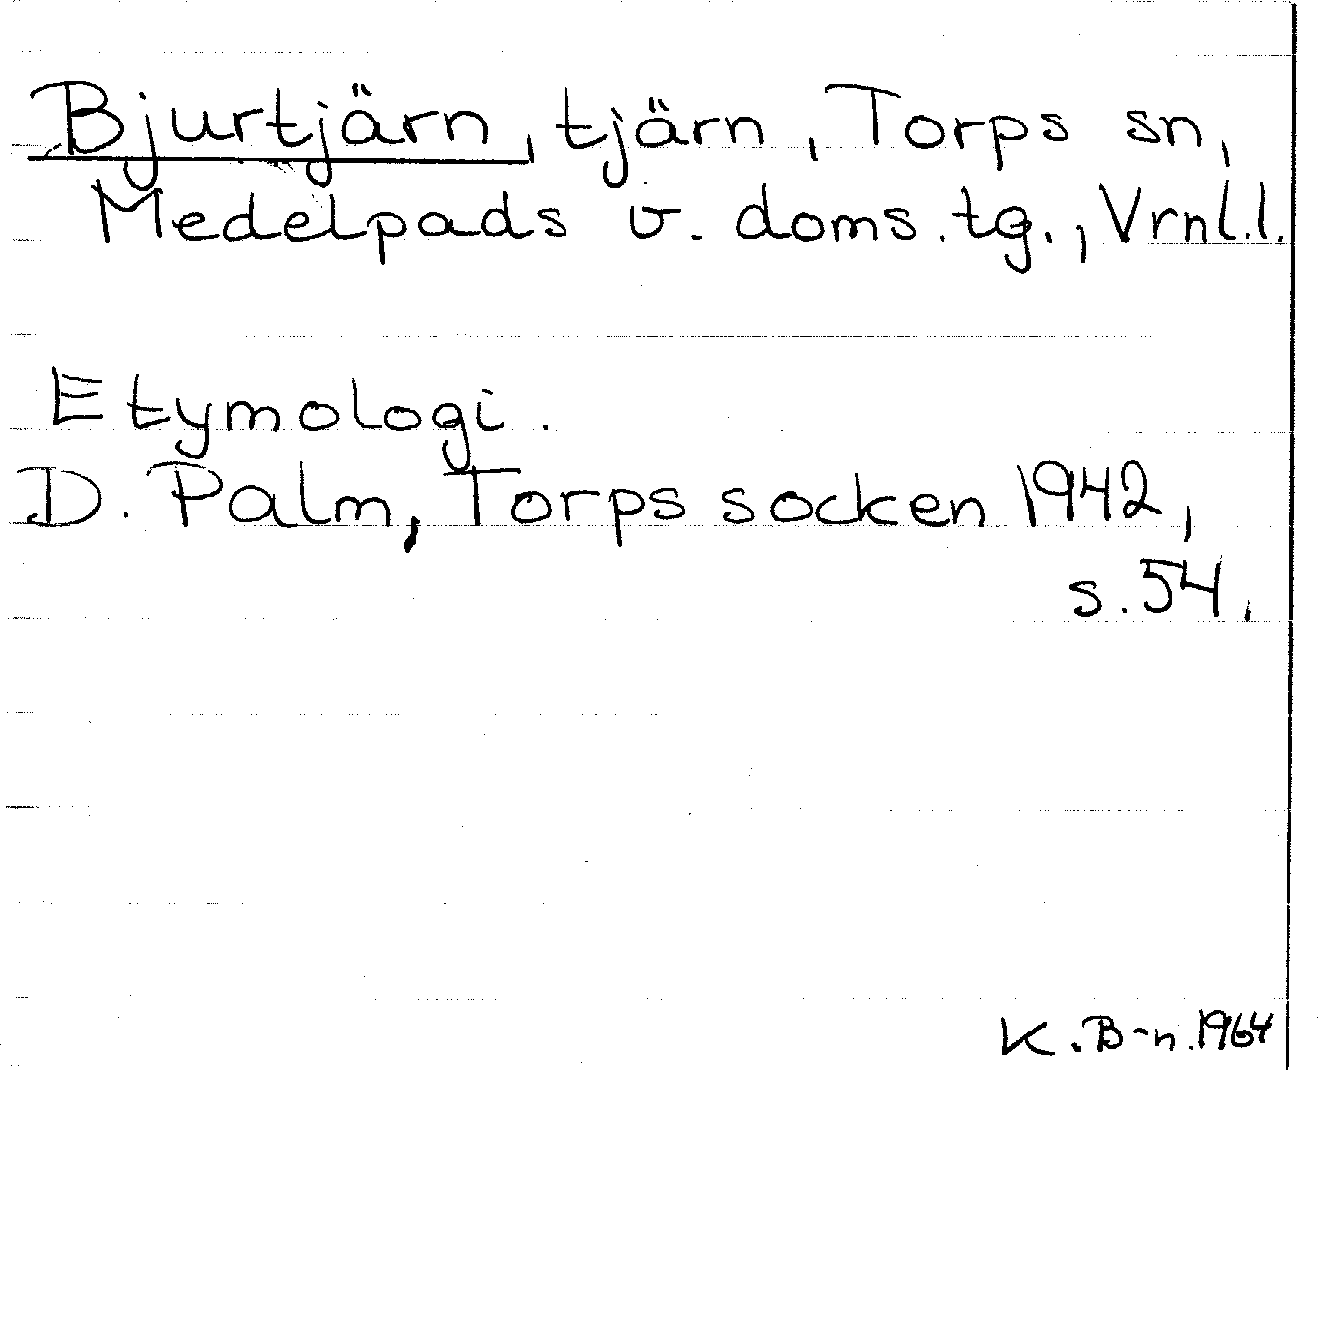 Bjurtjärn, tjärn, Torps sn,
Medelpads v. doms.tg., Vrnl.l.
Etymologi.
D. Palm, Torps socken 1942,
s.54.
K.B-n.1964